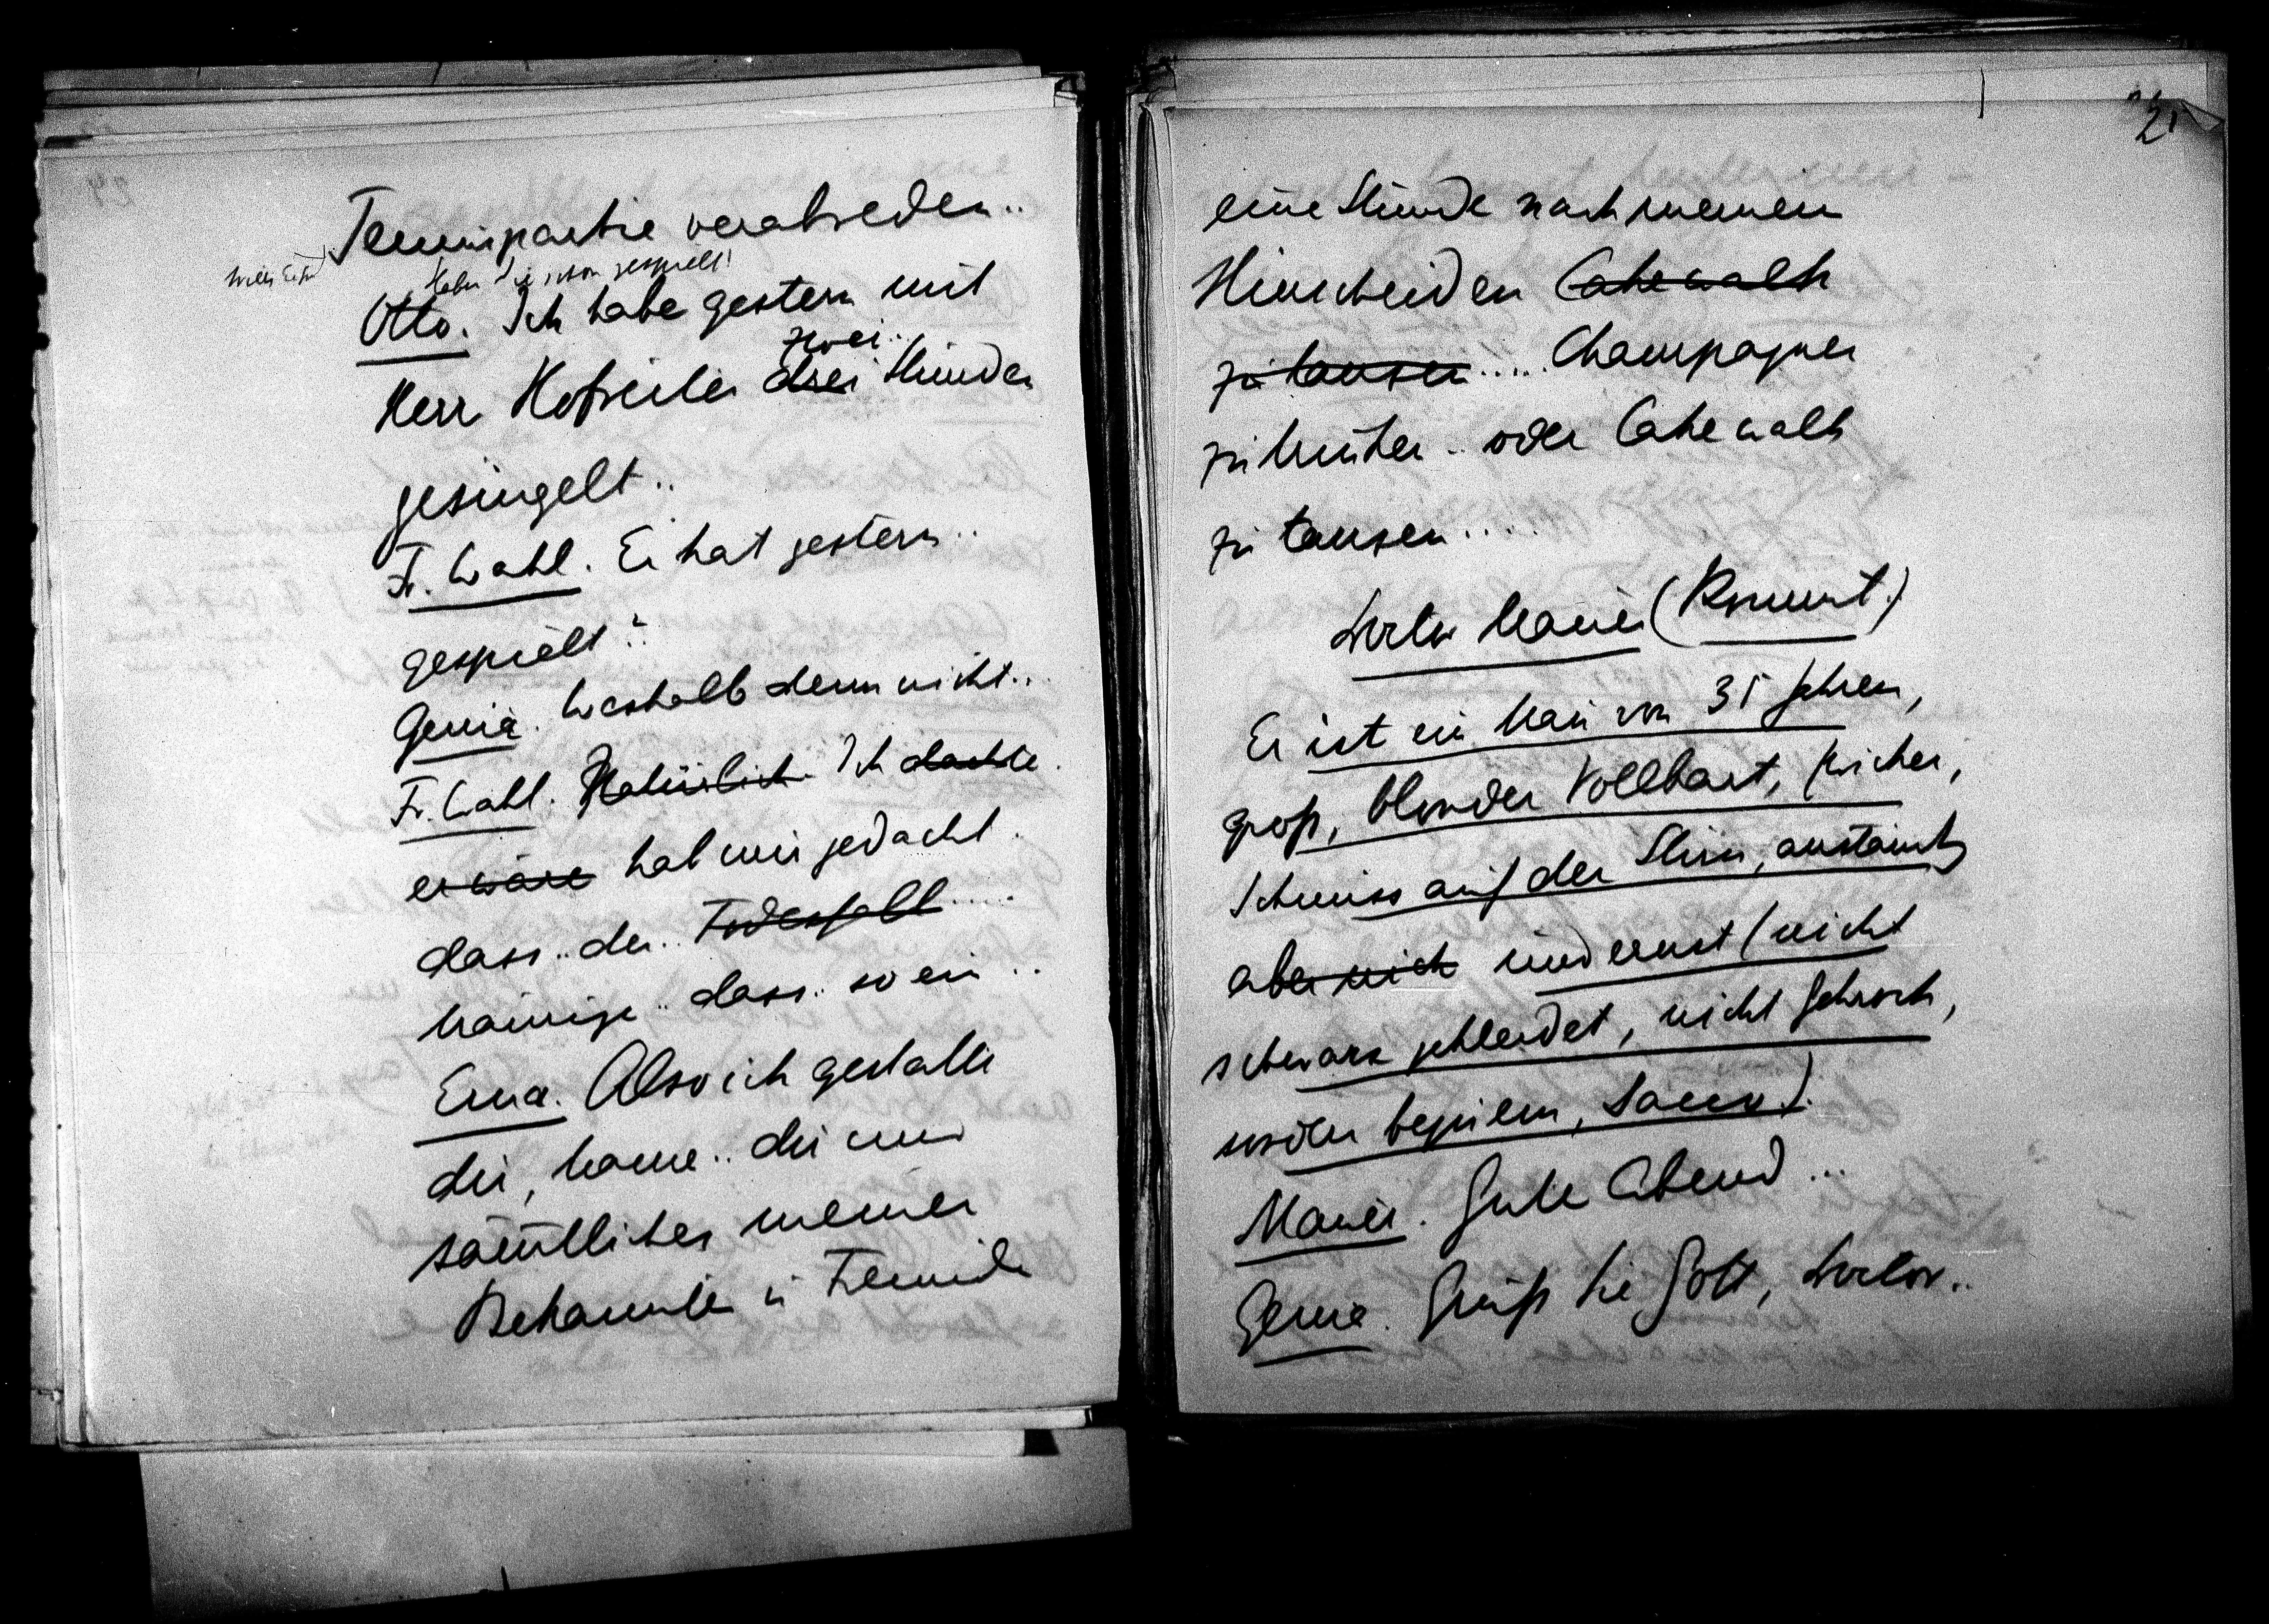 Tennispartie verabreden..
Haben Sie schon gespielt!
Otto. Ich habe gestern mit
zwei..
Herr Hofreiter drei Stunden
gesingelt..
Fr. Wahl. Er hat gestern..
gespielt?
Genia. Weshalb denn nicht..
Fr. Wahl. Natürlich Ich dachte.
er wäre hab mir gedacht.
dass.. der.. Todesfall.....
traurige.. dass.. so ein..
Erna. Also ich gestatte
dir, Mama.. dir und
sämtlichen meiner
Bekannten u Freunde
25
eine Stunde nach meinem
Hinscheiden Cakewalk
zu tanzen..... Champagner
zu trinken.. oder Cakewalk
zu tanzen.....
Doctor Mauer (kommt.)
Er ist ein Mann von 35 Jahren,
groß, blonder Vollbart, Zwicker,
Schmiss auf der Stirn,
aber nich und ernst (nicht
schwarz gekleidet, nicht Gehrock,
sondern bequem, Sacco).
Mauer. Guten Abend...
Genia. Grüß Sie Gott, Doctor..